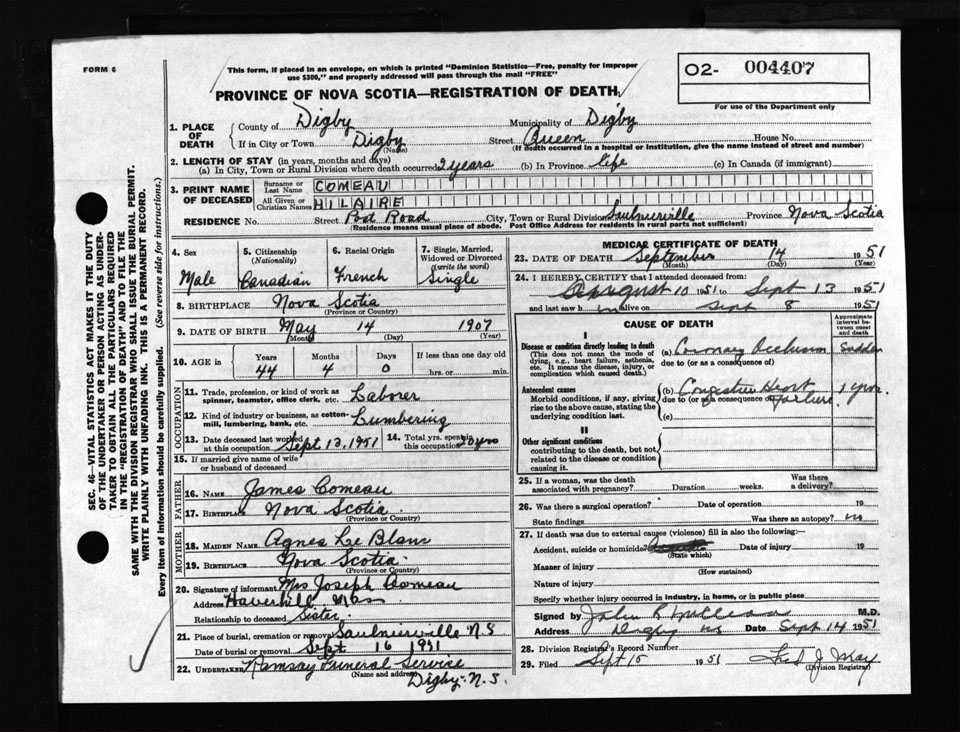 FORM 6
This form, if placed in an envelope, on which is printed "Dominion Statistics—Free, penalty for improper
use $300," and properly addressed will pass through the mail "FREE"
PROVINCE OF NOVA SCOTIA—REGISTRATION OF DEATH
O2- 004407
For use of the Department only
SEC. 46—VITAL STATISTICS ACT MAKES IT THE DUTY
OF THE UNDERTAKER OR PERSON ACTING AS UNDER-
TAKER TO OBTAIN ALL THE PARTICULARS REQUIRED
IN THE "REGISTRATION OF DEATH" AND TO FILE THE
SAME WITH THE DIVISION REGISTRAR WHO SHALL ISSUE THE BURIAL PERMIT.
WRITE PLAINLY WITH UNFADING INK. THIS IS A PERMANENT RECORD.
Every item of information should be carefully supplied. (See reverse side for instructions.)
1. PLACE OF DEATH
County of Digby Municipality of Digby
If in City or Town Digby Street Queen House No.
(Name) (If death occurred in a hospital or institution, give the name instead of street and number)
2. LENGTH OF STAY (in years, months and days)
(a) In City, Town or Rural Division where death occurred 2 years (b) In Province life (c) In Canada (if immigrant)
3. PRINT NAME OF DECEASED
Surname or Last Name COMEAU
All Given or Christian Names HILAIRE
RESIDENCE No. Street Post Road City, Town or Rural Division Saulnierville Province Nova Scotia
(Residence means usual place of abode. Post Office Address for residents in rural parts not sufficient)
4. Sex Male
5. Citizenship (Nationality) Canadian
6. Racial Origin French
7. Single, Married, Widowed or Divorced (write the word) Single
8. BIRTHPLACE Nova Scotia
(Province or Country)
9. DATE OF BIRTH May 14 1907
(Month) (Day) (Year)
10. AGE in Years Months Days If less than one day old
44 4 0 hrs. or min.
OCCUPATION
11. Trade, profession, or kind of work as spinner, teamster, office clerk, etc. Laborer
12. Kind of industry or business, as cotton-mill, lumbering, bank, etc. Lumbering
13. Date deceased last worked at this occupation Sept 13, 1951 14. Total yrs. spent in this occupation 20 yrs
15. If married give name of wife or husband of deceased
FATHER
16. NAME James Comeau
17. BIRTHPLACE Nova Scotia
(Province or Country)
MOTHER
18. MAIDEN NAME Agnes Le Blanc
19. BIRTHPLACE Nova Scotia
(Province or Country)
20. Signature of informant Mrs Joseph Comeau
Address Haverhill Mass
Relationship to deceased Sister
21. Place of burial, cremation or removal Saulnierville N.S
Date of burial or removal Sept 16 1951
22. UNDERTAKER Ramsay Funeral Service
(Name and address) Digby N.S.
MEDICAL CERTIFICATE OF DEATH
23. DATE OF DEATH September 14 1951
(Month) (Day) (Year)
24. I HEREBY CERTIFY that I attended deceased from:
August 10 1951 to Sept 13 1951
and last saw him on Sept 8 1951
CAUSE OF DEATH
Approximate interval between onset and death
I
Disease or condition directly leading to death
(This does not mean the mode of dying, e.g., heart failure, asthenia, etc. It means the disease, injury, or complication which caused death.)
(a) Coronary Occlusion Sudden
due to (or as a consequence of)
Antecedent causes
Morbid conditions, if any, giving rise to the above cause, stating the underlying condition last.
(b) Congestive Heart Failure 1 year
due to (or as a consequence of)
(c)
II
Other significant conditions
contributing to the death, but not related to the disease or condition causing it.
25. If a woman, was the death associated with pregnancy? Duration weeks. Was there a delivery?
26. Was there a surgical operation? Date of operation 19
State findings Was there an autopsy? no
27. If death was due to external causes (violence) fill in also the following:—
Accident, suicide or homicide? Date of injury 19
(State which)
Manner of injury
(How sustained)
Nature of injury
Specify whether injury occurred in industry, in home, or in public place
Signed by John R McCleave M.D.
Address Digby NS Date Sept 14 1951
28. Division Registrar's Record Number
29. Filed Sept 15 1951 Fred J. May
(Division Registrar)